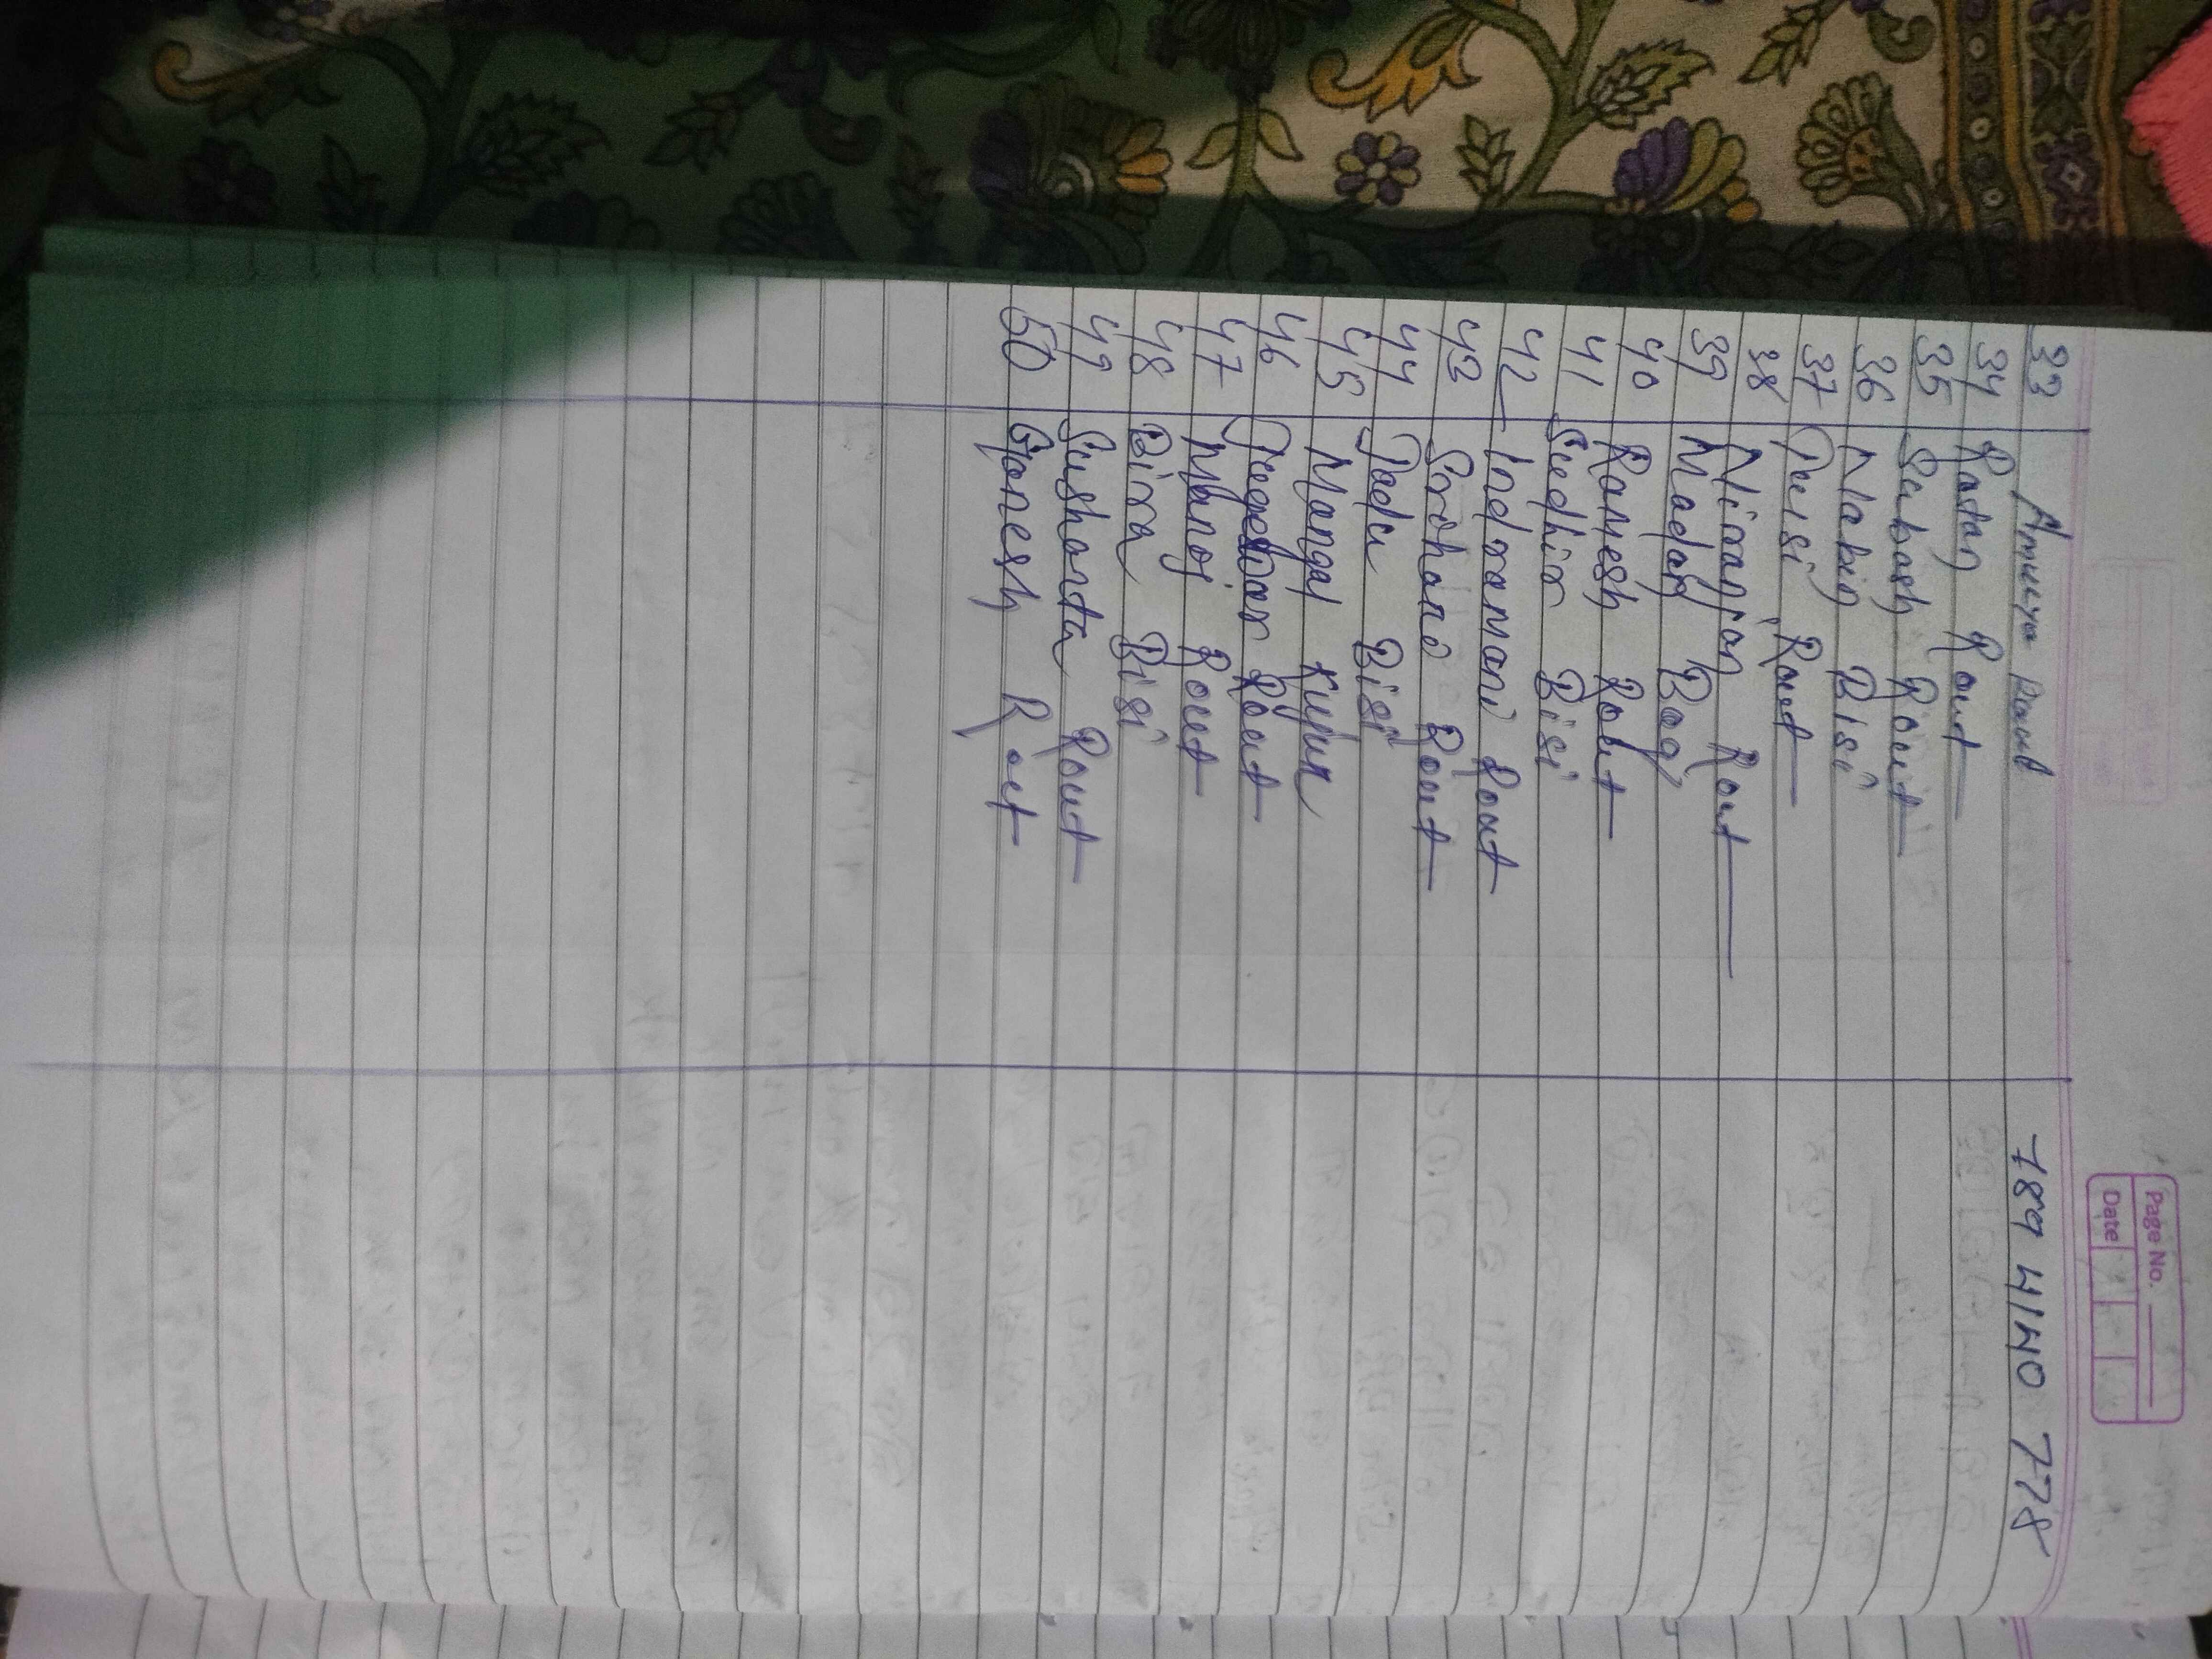 Page No.
Date
33 Amulya Raut 789 41410 778
34 Ratan Rout
35 Subash Rout
36 Nabin Bisi
37 Tulsi Rout
38 Niranjan Rout
39 Madan Bag
40 Ramesh Rout
41 Sudhir Bisi
42 Indramani Rout
43 Rout
44 Dadu Bisi
45 Mangal
46 Rout
47 Manoj Rout
48 Bira Bisi
49 Sushanta Rout
50 Ganesh Rout